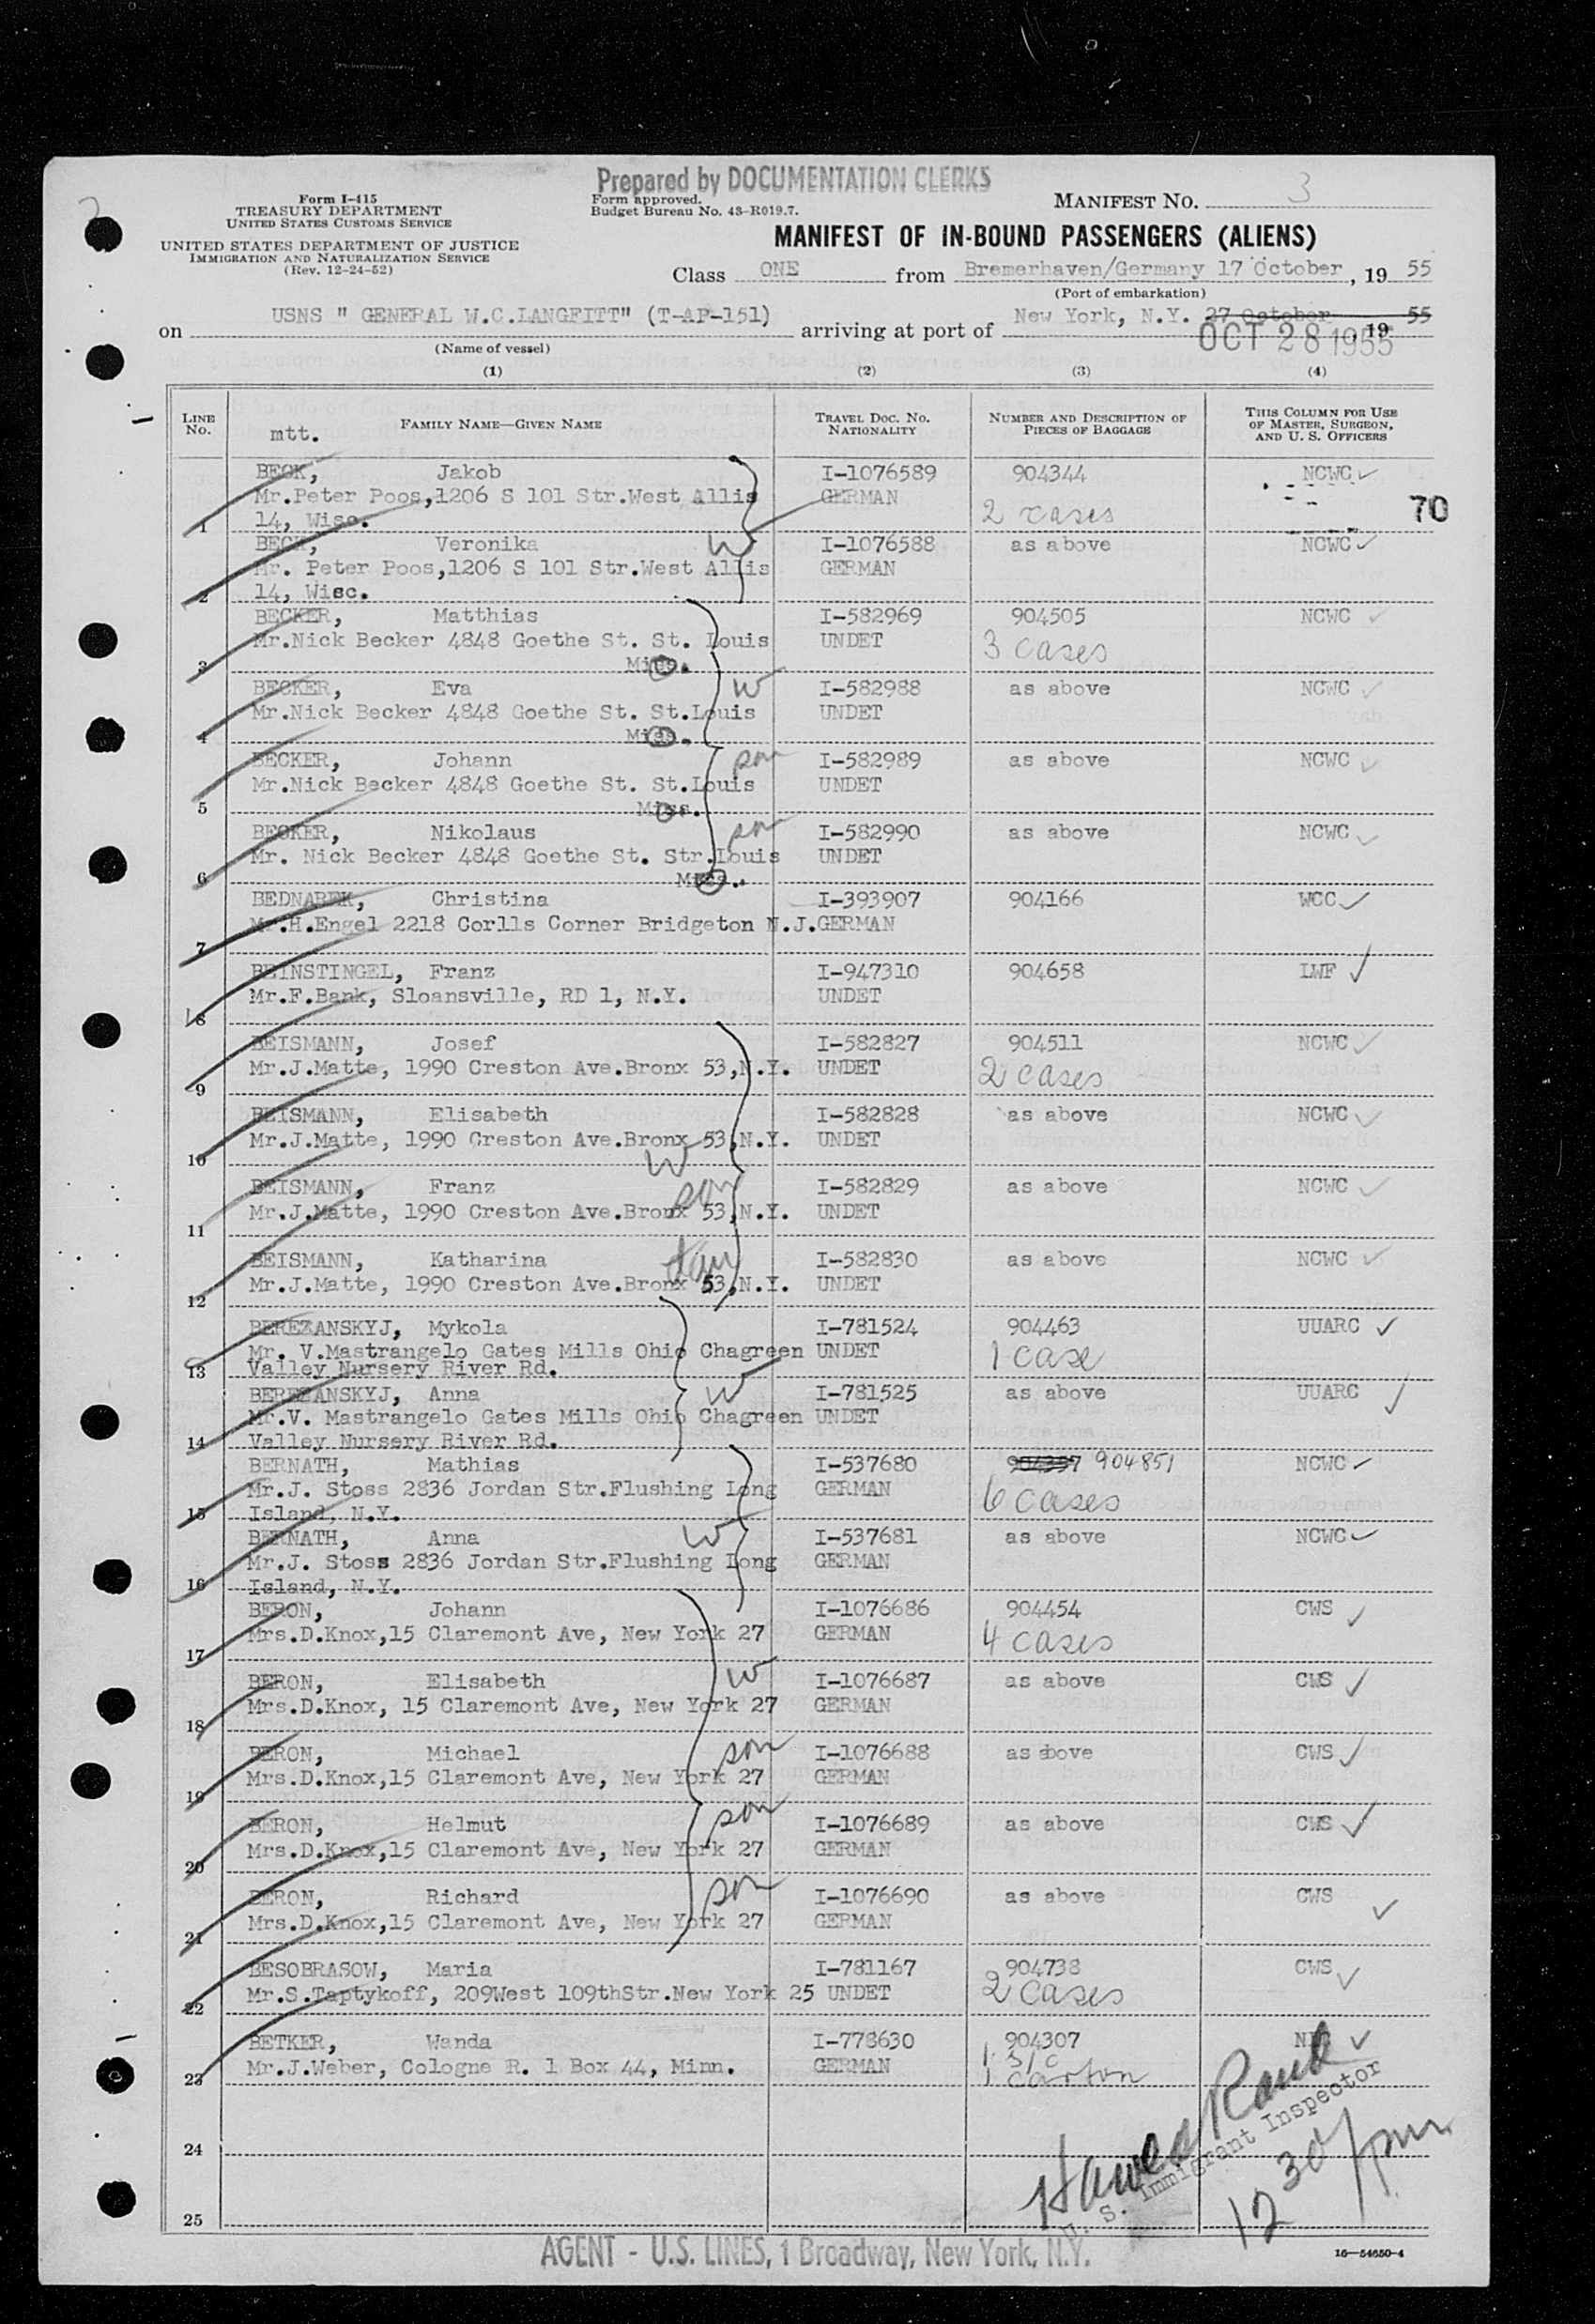 Prepared by DOCUMENTATION CLERKS
Form I-415
TREASURY DEPARTMENT
UNITED STATES CUSTOMS SERVICE
UNITED STATES DEPARTMENT OF JUSTICE
IMMIGRATION AND NATURALIZATION SERVICE
(Rev. 12-24-52)
Form approved.
Budget Bureau No. 43-R019.7.
MANIFEST NO. 3
MANIFEST OF IN-BOUND PASSENGERS (ALIENS)
Class ONE from Bremerhaven/Germany 17 October, 19 55
(Port of embarkation)
on USNS " GENERAL W.C.LANGFITT" (T-AP-151) arriving at port of New York, N.Y. 27 October 19 55
OCT 28 1955
(Name of vessel)
(1) (2) (3) (4)
LINE NO. mtt. FAMILY NAME—GIVEN NAME TRAVEL DOC. NO. NATIONALITY NUMBER AND DESCRIPTION OF PIECES OF BAGGAGE THIS COLUMN FOR USE OF MASTER, SURGEON, AND U. S. OFFICERS
BECK, Jakob I-1076589 904344 NCWC
Mr.Peter Poos,1206 S 101 Str.West Allis GERMAN 2 cases 70
1 14, Wisc.
BECK, Veronika W I-1076588 as above NCWC
Mr. Peter Poos,1206 S 101 Str.West Allis GERMAN
2 14, Wisc.
BECKER, Matthias I-582969 904505 NCWC
Mr.Nick Becker 4848 Goethe St. St. Louis UNDET 3 cases
3
BECKER, Eva W I-582988 as above NCWC
Mr.Nick Becker 4848 Goethe St. St.Louis UNDET
4
BECKER, Johann son I-582989 as above NCWC
Mr.Nick Becker 4848 Goethe St. St.Louis UNDET
5
BECKER, Nikolaus son I-582990 as above NCWC
Mr. Nick Becker 4848 Goethe St. Str.Louis UNDET
6
BEDNAREK, Christina I-393907 904166 WCC
Mr.H.Engel 2218 Corlls Corner Bridgeton N.J. GERMAN
7
BEINSTINGEL, Franz I-947310 904658 LWF
Mr.F.Bank, Sloansville, RD 1, N.Y. UNDET
8
BEISMANN, Josef I-582827 904511 NCWC
Mr.J.Matte, 1990 Creston Ave.Bronx 53,N.Y. UNDET 2 cases
9
BEISMANN, Elisabeth I-582828 as above NCWC
Mr.J.Matte, 1990 Creston Ave.Bronx 53,N.Y. UNDET
10 W
BEISMANN, Franz son I-582829 as above NCWC
Mr.J.Matte, 1990 Creston Ave.Bronx 53,N.Y. UNDET
11
BEISMANN, Katharina dau I-582830 as above NCWC
Mr.J.Matte, 1990 Creston Ave.Bronx 53,N.Y. UNDET
12
BEREZANSKYJ, Mykola I-781524 904463 UUARC
Mr. V.Mastrangelo Gates Mills Ohio Chagreen UNDET 1 case
13 Valley Nursery River Rd.
BEREZANSKYJ, Anna W I-781525 as above UUARC
Mr.V. Mastrangelo Gates Mills Ohio Chagreen UNDET
14 Valley Nursery River Rd.
BERNATH, Mathias I-537680 904851 NCWC
Mr.J. Stoss 2836 Jordan Str.Flushing Long GERMAN 6 cases
15 Island, N.Y.
BERNATH, Anna W I-537681 as above NCWC
Mr.J. Stoss 2836 Jordan Str.Flushing Long GERMAN
16 Island, N.Y.
BERON, Johann I-1076686 904454 CWS
Mrs.D.Knox,15 Claremont Ave, New York 27 GERMAN 4 cases
17
BERON, Elisabeth W I-1076687 as above CWS
Mrs.D.Knox, 15 Claremont Ave, New York 27 GERMAN
18
BERON, Michael son I-1076688 as above CWS
Mrs.D.Knox,15 Claremont Ave, New York 27 GERMAN
19
BERON, Helmut son I-1076689 as above CWS
Mrs.D.Knox,15 Claremont Ave, New York 27 GERMAN
20
BERON, Richard son I-1076690 as above CWS
Mrs.D.Knox,15 Claremont Ave, New York 27 GERMAN
21
BESOBRASOW, Maria I-781167 904738 CWS
Mr.S.Taptykoff, 209West 109thStr.New York 25 UNDET 2 cases
22
BETKER, Wanda I-778630 904307
Mr.J.Weber, Cologne R. 1 Box 44, Minn. GERMAN 1 s/c
23 1 carton
U. S. Immigrant Inspector
24
12 30 pm
25
AGENT - U.S. LINES, 1 Broadway, New York, N.Y.
16—54650-4